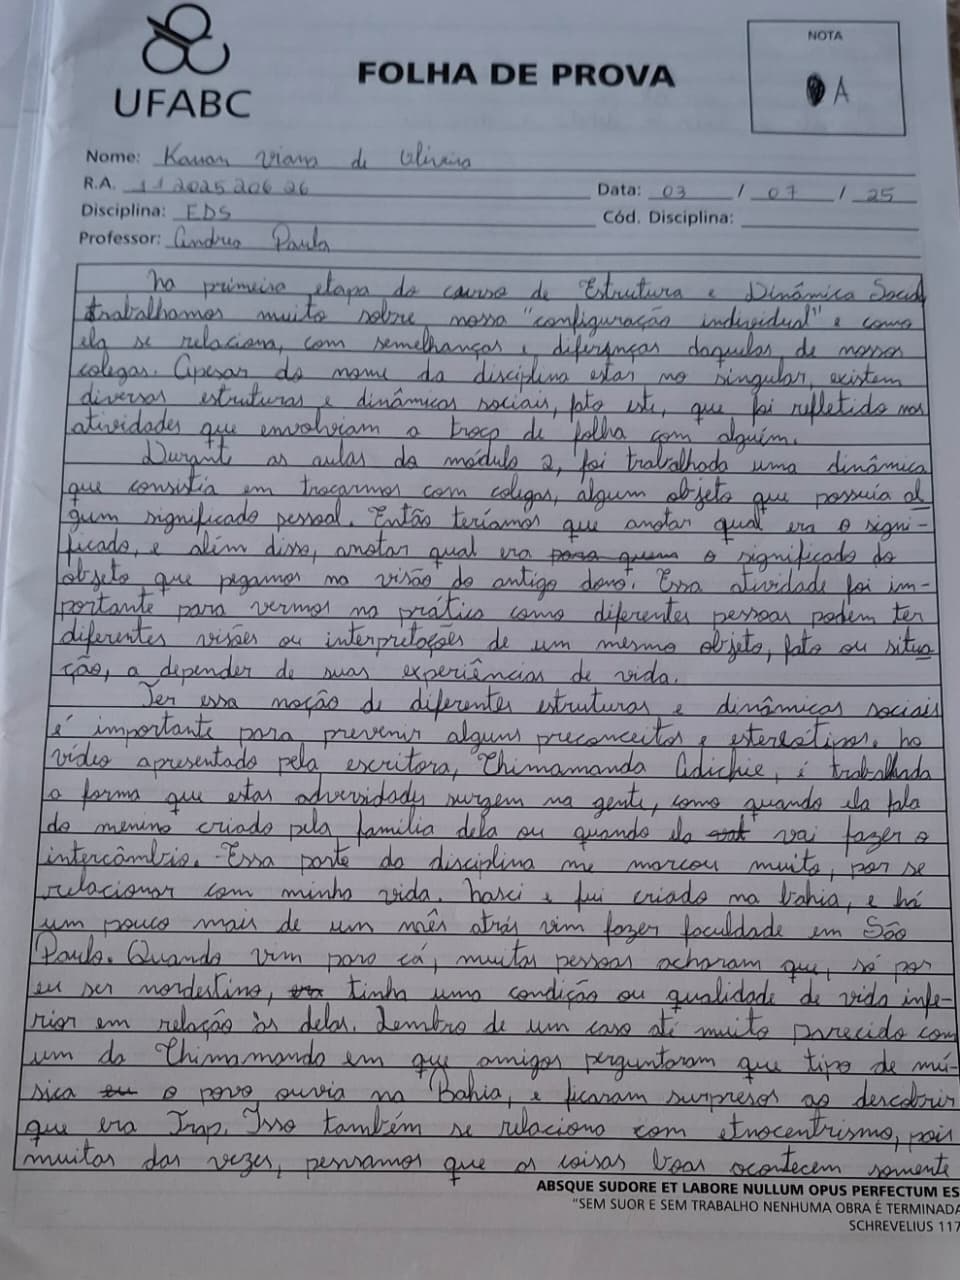 UFABC
FOLHA DE PROVA
NOTA
A
Nome: Kauan Viana de Oliveira
R.A. 11202520626
Data: 03 / 07 / 25
Disciplina: EDS
Cód. Disciplina:
Professor: Andrea Paula
Na primeira etapa do curso de Estrutura e Dinâmica Social
trabalhamos muito sobre nossa "configuração individual" e como
ela se relaciona, com semelhanças e diferenças daquelas de nossos
colegas. Apesar do nome da disciplina estar no singular, existem
diversas estruturas e dinâmicas sociais, fato este, que foi refletido nas
atividades que envolviam a troca de folha com alguém.
Durante as aulas do módulo 2, foi trabalhada uma dinâmica
que consistia em trocarmos com colegas, algum objeto que possuía al
gum significado pessoal. Então teríamos que anotar qual era o signi-
ficado, e além disso, anotar qual era para quem o significado do
objeto que pegamos na visão do antigo dono. Essa atividade foi im-
portante para vermos na prática como diferentes pessoas podem ter
diferentes visões ou interpretações de um mesmo objeto, fato ou situa
ção, a depender de suas experiências de vida.
Ter essa noção de diferentes estruturas e dinâmicas sociais
é importante para prevenir alguns preconceitos e estereótipos. No
vídeo apresentado pela escritora, Chimamanda Adichie, é trabalhada
a forma que estas adversidades surgem na gente, como quando ela fala
do menino criado pela família dela ou quando ela vai fazer o
intercâmbio. Essa parte da disciplina me marcou muito, por se
relacionar com minha vida. Nasci e fui criado na bahia, e há
um pouco mais de um mês atrás vim fazer faculdade em São
Paulo. Quando vim para cá, muitas pessoas acharam que, só por
eu ser nordestino, tinha uma condição ou qualidade de vida infe-
rior em relação às delas. Lembro de um caso até muito parecido com
um da Chimamanda em que amigos perguntaram que tipo de mú-
sica eu o povo ouvia na Bahia, e ficaram surpresos ao descobrir
que era Trap. Isso também se relaciona com etnocentrismo, pois
muitas das vezes, pensamos que as coisas boas acontecem somente
ABSQUE SUDORE ET LABORE NULLUM OPUS PERFECTUM ES
"SEM SUOR E SEM TRABALHO NENHUMA OBRA É TERMINADA
SCHREVELIUS 117